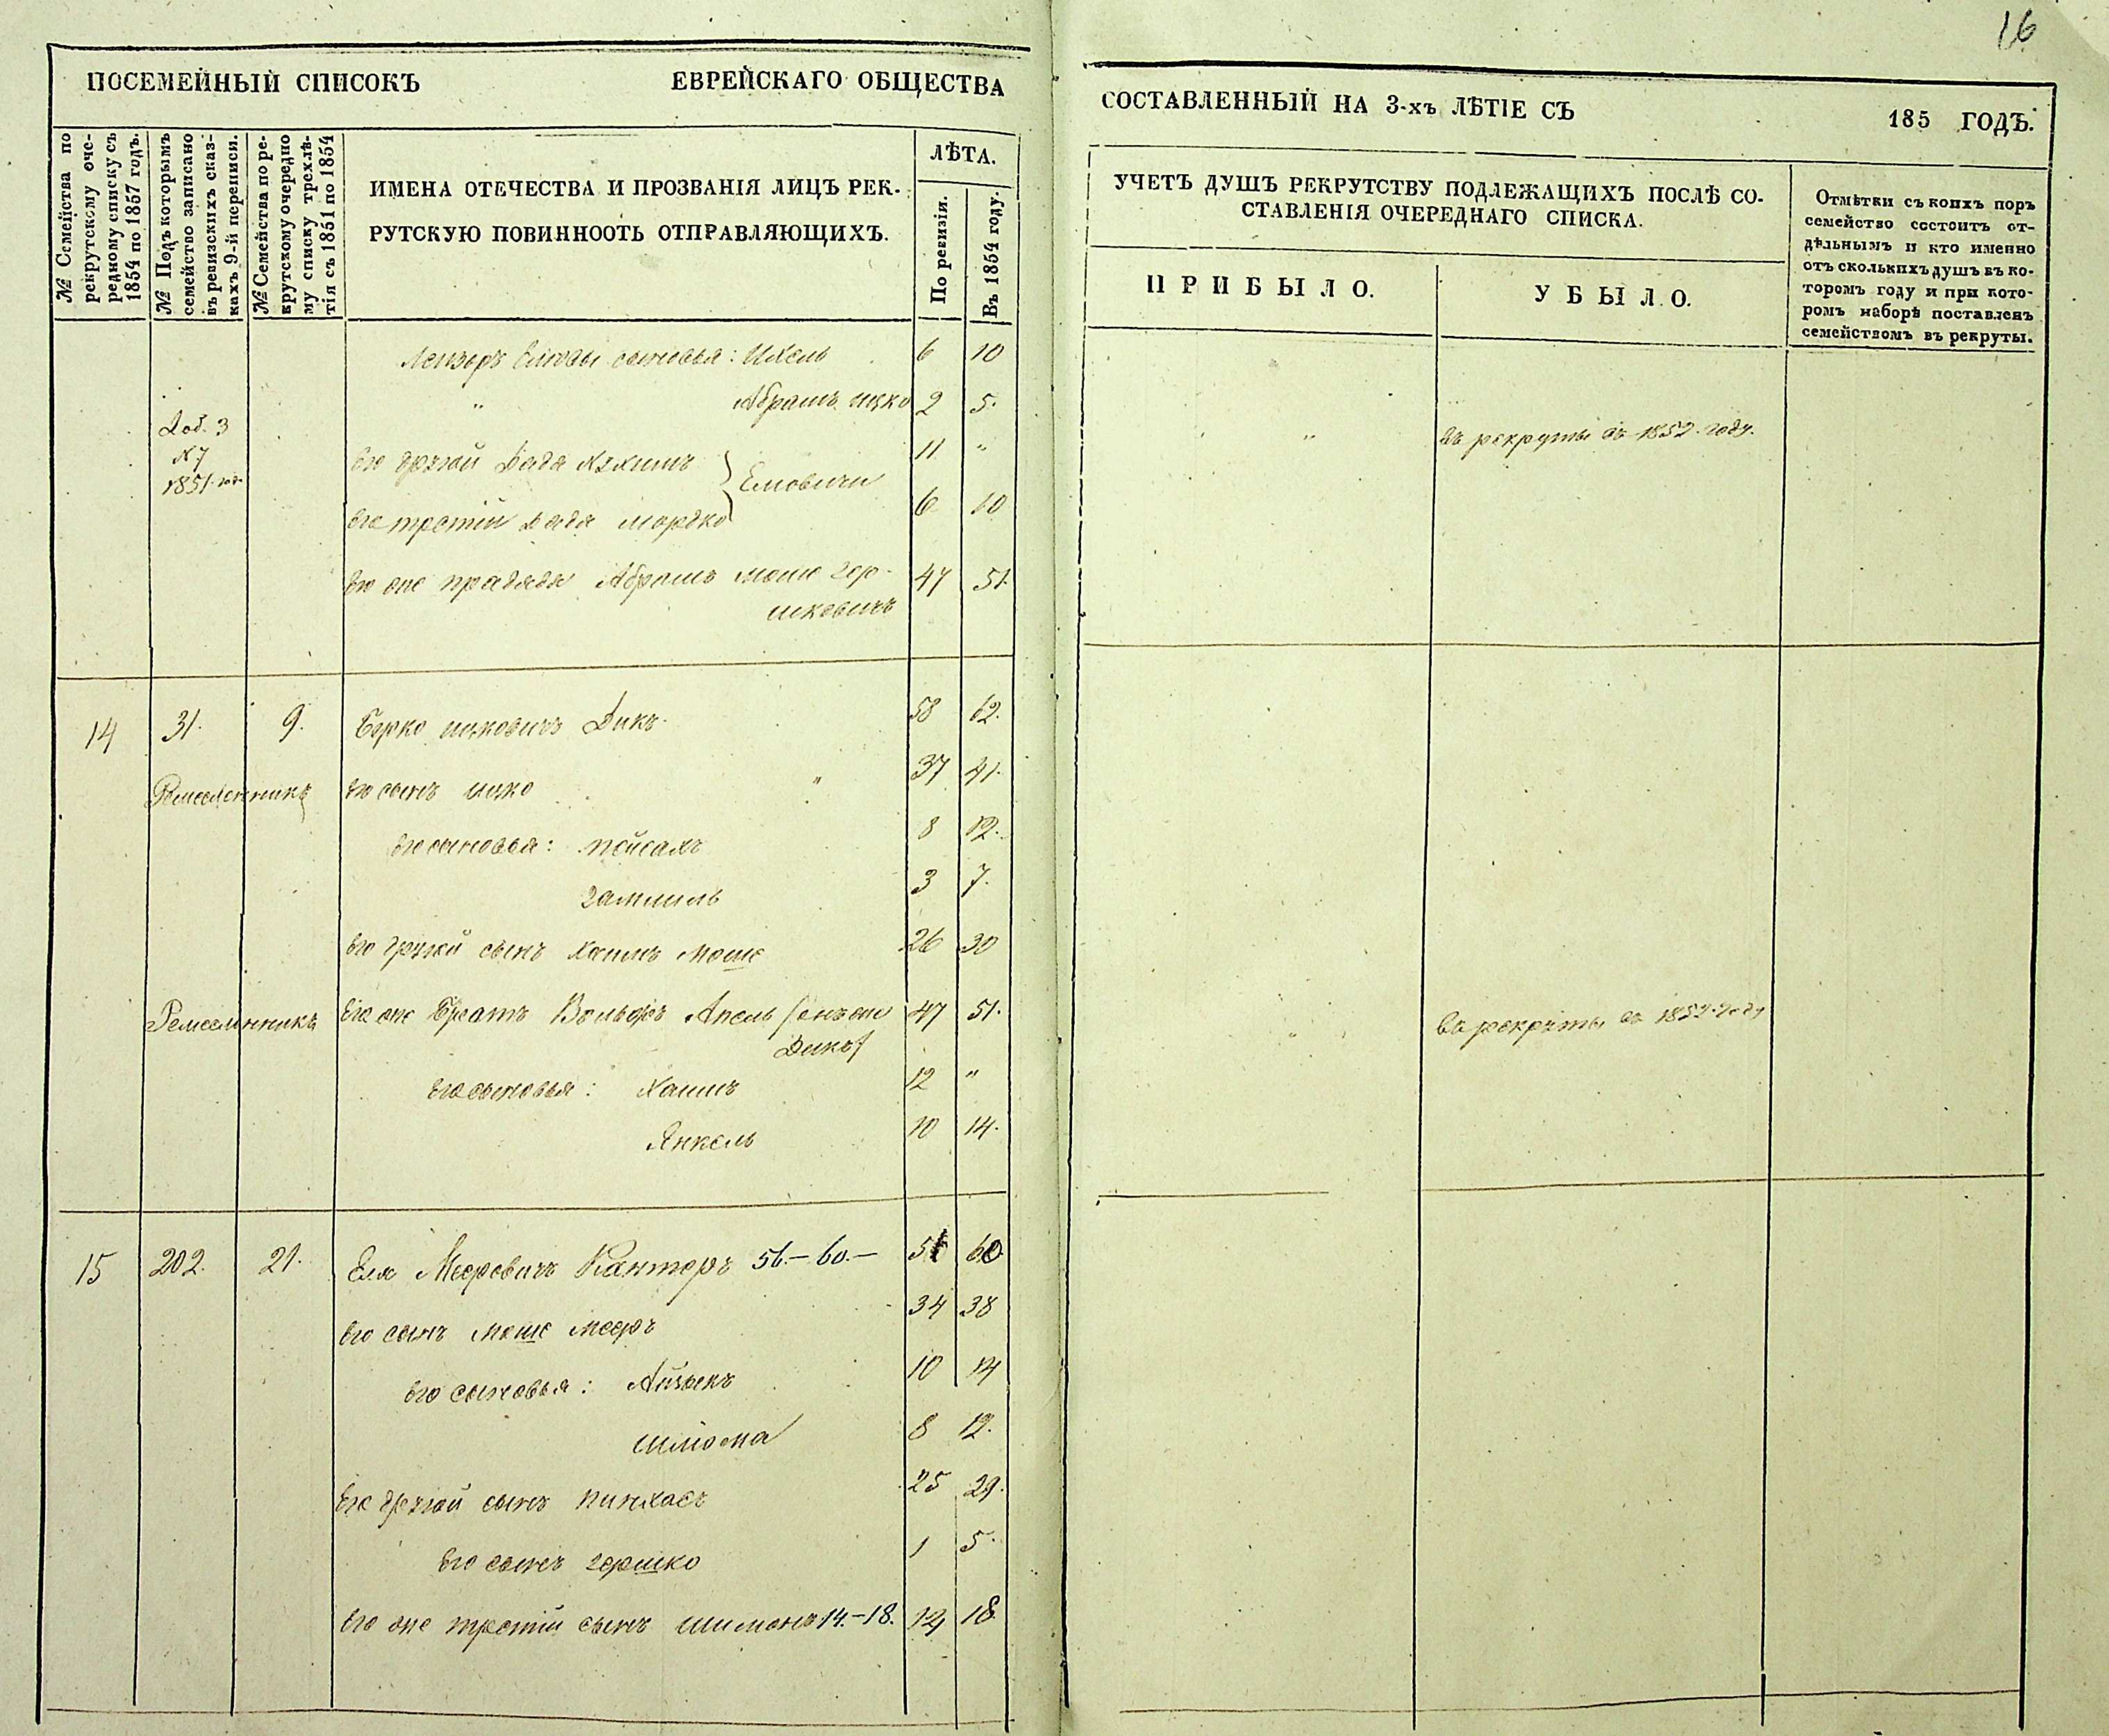 16
ПОСЕМЕЙНЫЙ СПИСОКЪ ЕВРЕЙСКАГО ОБЩЕСТВА
СОСТАВЛЕННЫЙ НА 3-хъ ЛѢТІЕ СЪ 185 ГОДЪ.
№ Семейства по
рекрутскому оче-
редному списку съ
1854 по 1857 годъ.
№ Подъ которымъ
семейство записано
въ ревизскихъ сказ-
кахъ 9-й переписи.
№ Семейства по ре-
крутскому очередно
му списку трехлѣ-
тія съ 1851 по 1854
ИМЕНА ОТЕЧЕСТВА И ПРОЗВАНІЯ ЛИЦЪ РЕК-
РУТСКУЮ ПОВИННООТЬ ОТПРАВЛЯЮЩИХЪ.
ЛѢТА.
По ревизія.
Въ 1854 году.
УЧЕТЪ ДУШЪ РЕКРУТСТВУ ПОДЛЕЖАЩИХЪ ПОСЛѢ СО-
СТАВЛЕНІЯ ОЧЕРЕДНАГО СПИСКА.
ПРИБЫЛО.
УБЫЛО.
Отмѣтки съ коихъ поръ
семейство состоитъ от-
дѣльнымъ и кто именно
отъ сколькихъ душъ въ ко-
торомъ году и при кото-
ромъ наборѣ поставленъ
семействомъ въ рекруты.
сыновья: Ихель 6 10
" Абрамъ ицко 2 5.
Доб. 3
№ 7
1851 год.
Его другой дядя 11 " " въ рекруты въ 1852 году.
Елиовичи
Его третій дядя Мордко 6 10
Его же прадядя Абрамъ моше гер- 47 51.
шковичъ
14 31. 9. Берко ицковичъ Дикъ. 58 62.
Ремесленникъ Его сынъ ицко " 37 41.
Его сыновья: пейсахъ 8 12.
3 7.
Его другой сынъ хаимъ моше 26 30
Ремесленникъ Его же братъ Вольфъ /онъ же 47 51.
Дикъ/
Его сыновья: Хаимъ 12 " " въ рекруты въ 1852 году
Янкель 10 14.
15 202. 21. Еля Мееровичъ Канторъ 56.—60.— 56 60.
Его сынъ моше мееръ 34 38
Его сыновья: Айзыкъ 10 14
шлиома 8 12.
Его другой сынъ пинхасъ 25 29.
Его сынъ гершко 1 5.
Его же третій сынъ шимонъ 14.—18. 14 18